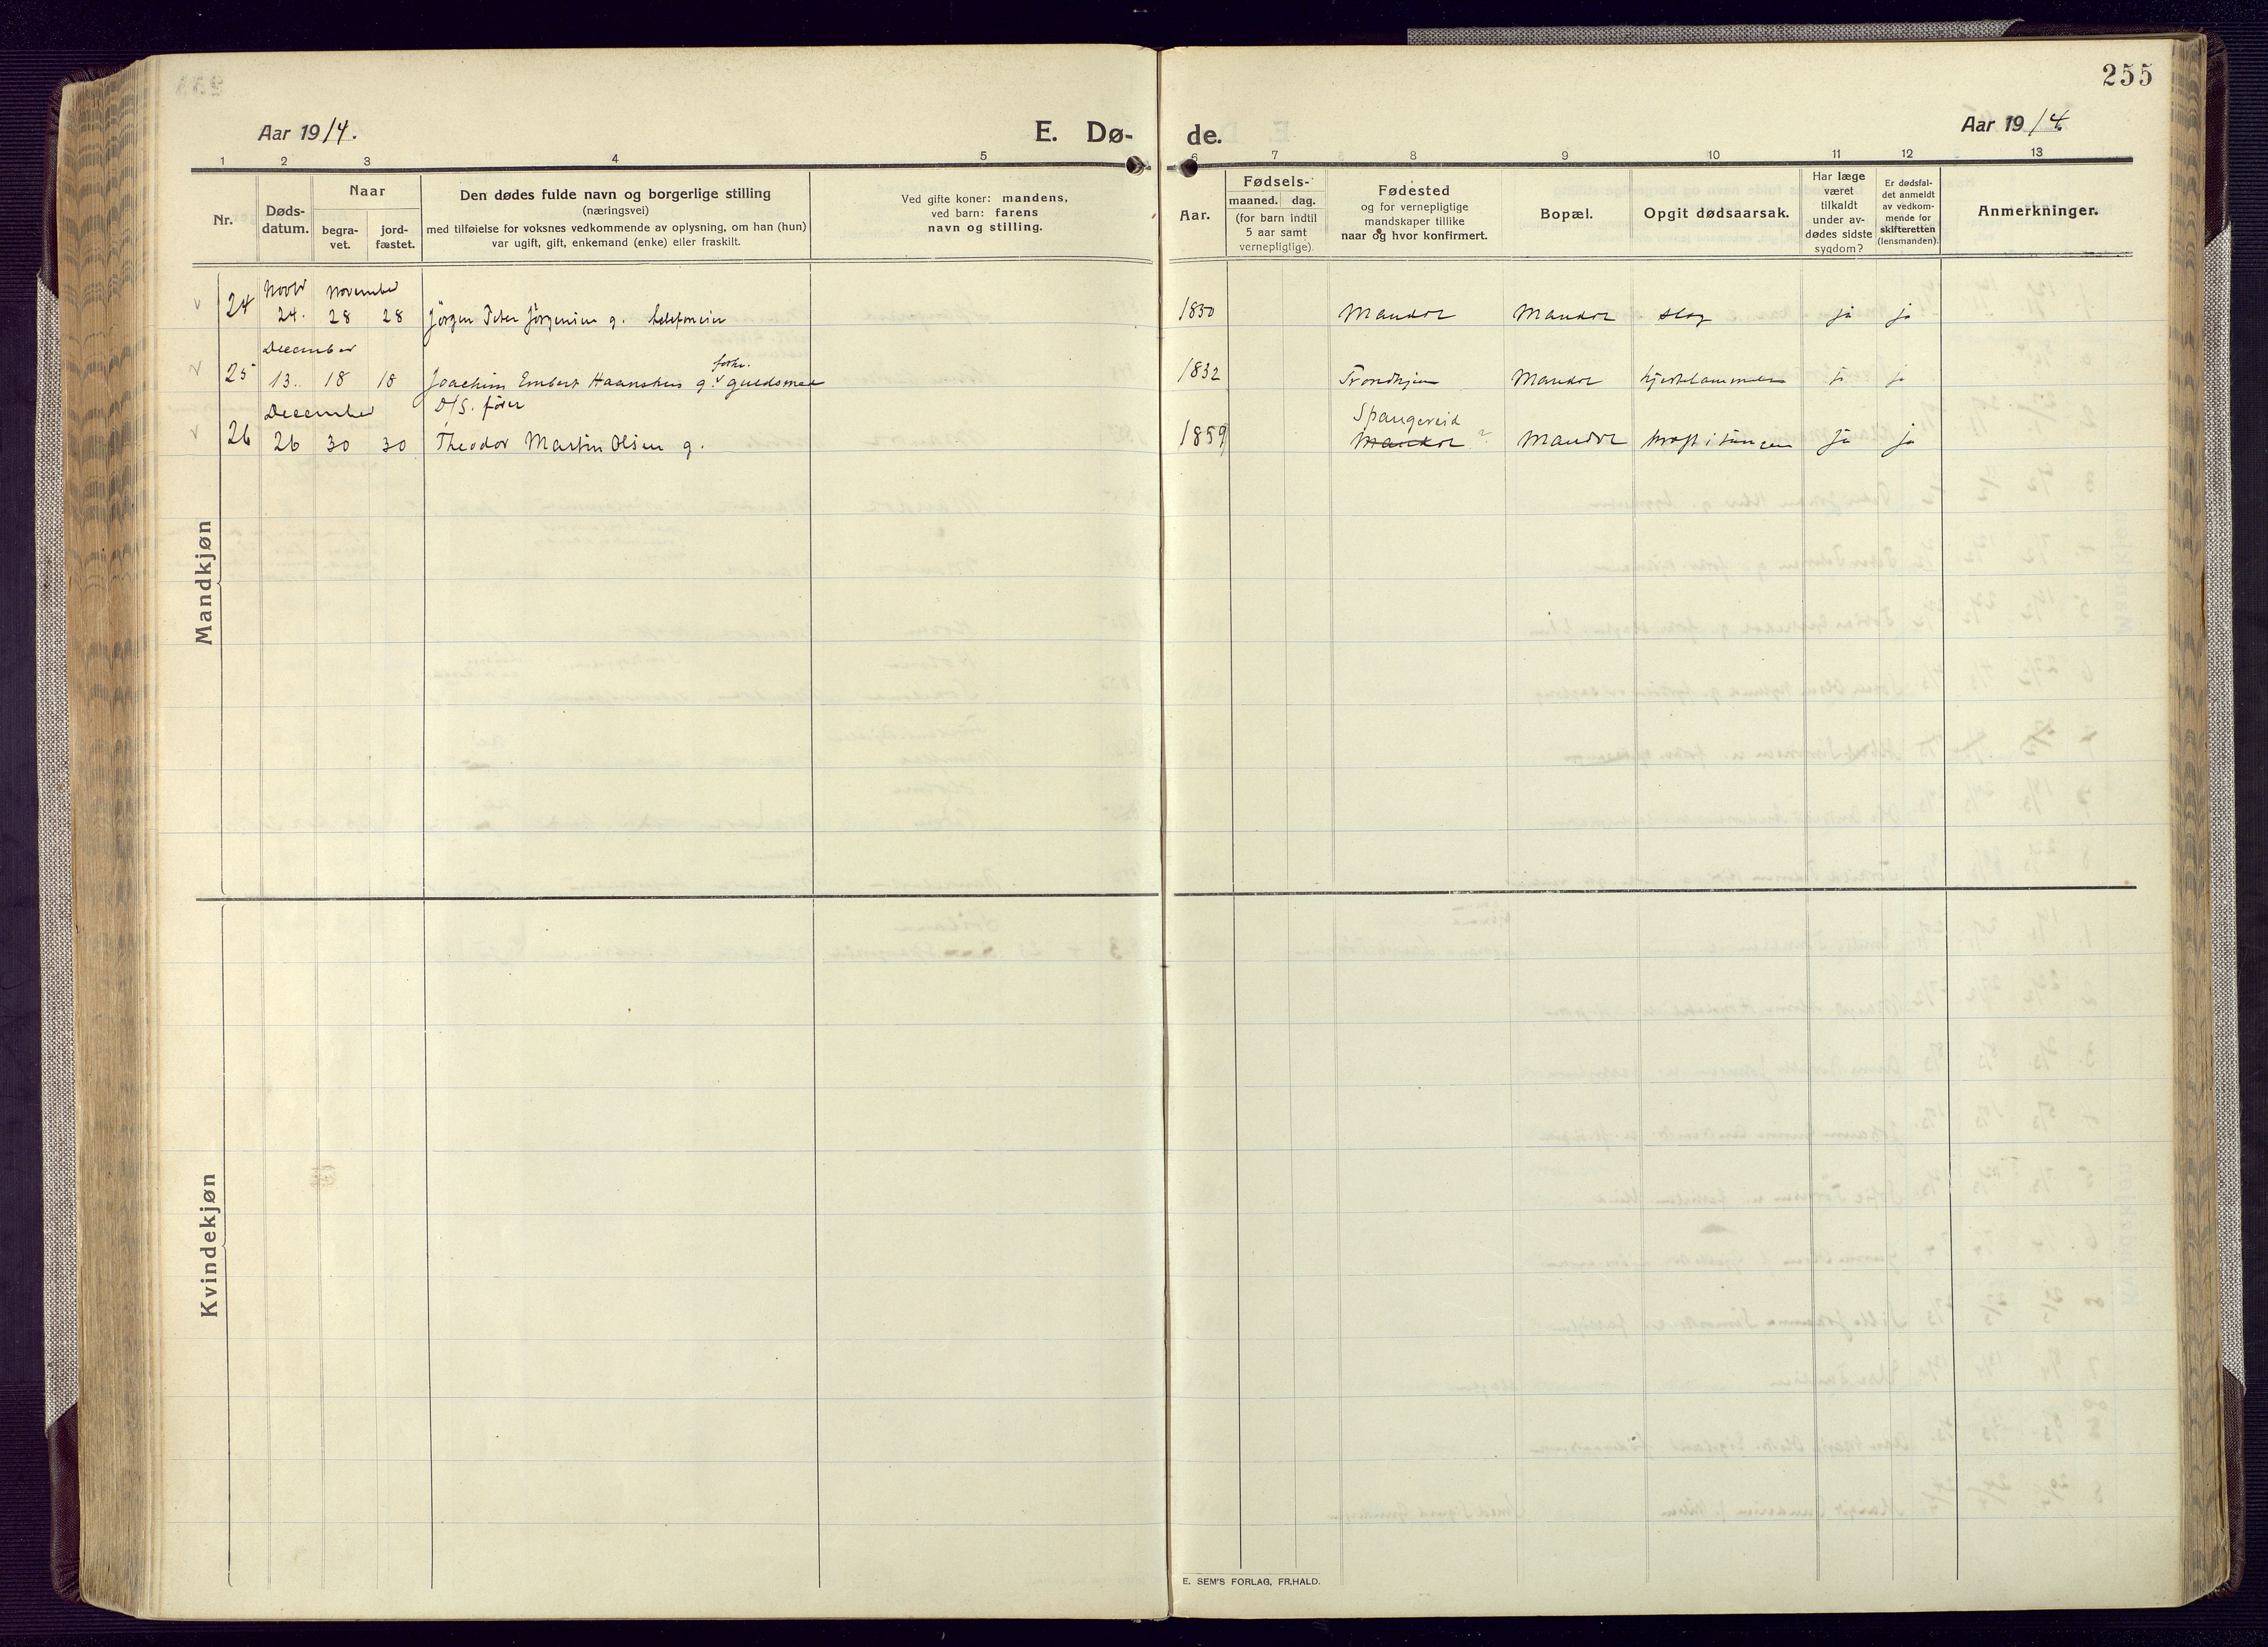 255
Aar 1914.
E. Dø-
de.
Aar 1914.
1 2 3 4 5
6 7 8 9 10 11 12 13
Nr.
Døds-
datum.
Naar
begra-
vet.
jord-
fæstet.
Den dødes fulde navn og borgerlige stilling
(næringsvei)
med tilføielse for voksnes vedkommende av oplysning, om han (hun)
var ugift, gift, enkemand (enke) eller fraskilt.
Ved gifte koner: mandens,
ved barn: farens
navn og stilling.
Aar.
Fødsels-
maaned. dag.
(for barn indtil
5 aar samt
vernepligtige).
Fødested
og for vernepligtige
mandskaper tillike
naar og hvor konfirmert.
Bopæl.
Opgit dødsaarsak.
Har læge
været
tilkaldt
under av-
dødes sidste
sygdom?
Er dødsfal-
det anmeldt
av vedkom-
mende for
skifteretten
(lensmanden).
Anmerkninger.
Mandkjøn
Novbr November
24 24. 28 28 Jörgen Peter Jörgensen g. 1850 Mandal Mandal slag ja ja
December
forhv.
25 13. 18 18 Joachim Embert Haanshus g. guldsmed 1832 Trondhjem Mandal ja ja
December D/S. fører Spangereid
26 26 30 30 Theodor Martin Olsen g. 1859 Mandal ? Mandal kræft i tungen ja ja
Kvindekjøn
E. SEM'S FORLAG, FR.HALD.